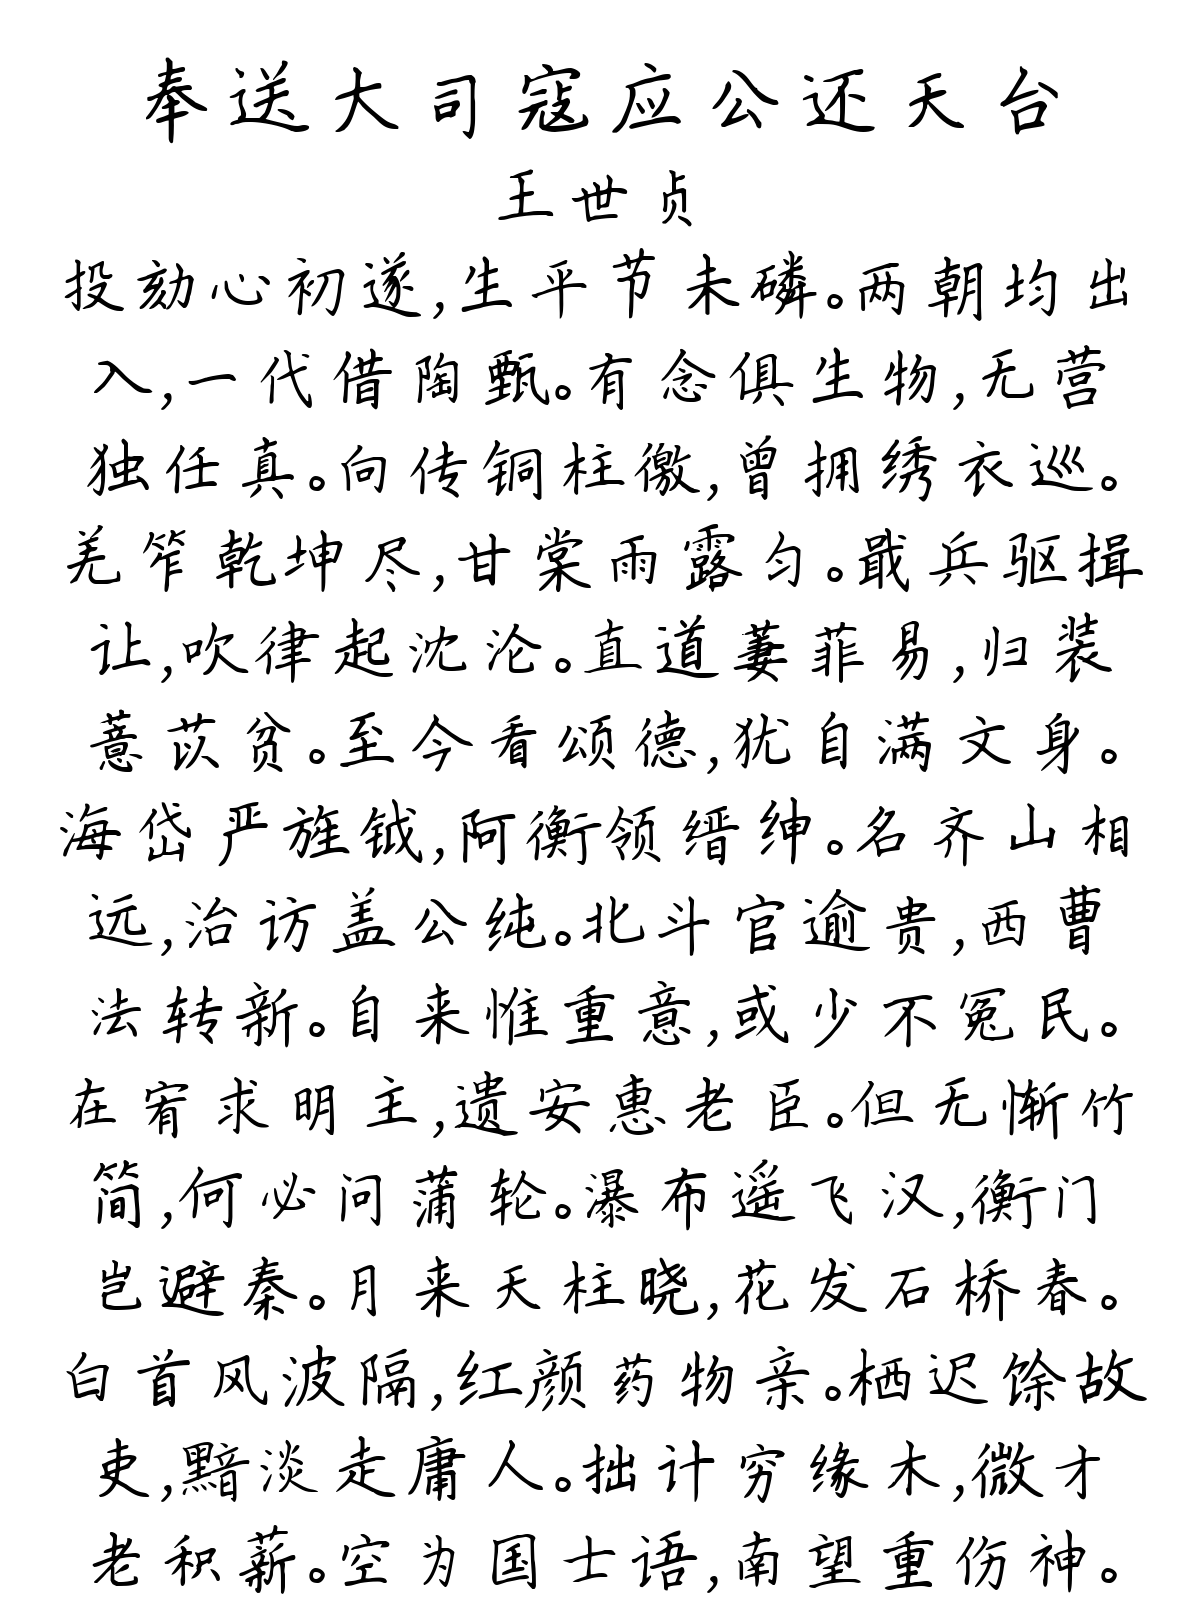 奉送大司寇应公还天台
王世贞
投劾心初遂,生平节未磷。两朝均出
入,一代借陶甄。有念俱生物,无营
独任真。向传铜柱徼,曾拥绣衣巡。
羌笮乾坤尽,甘棠雨露匀。戢兵驱揖
让,吹律起沈沦。直道萋菲易,归装
薏苡贫。至今看颂德,犹自满文身。
海岱严旌钺,阿衡领缙绅。名齐山相
远,治访盖公纯。北斗官逾贵,西曹
法转新。自来惟重意,或少不冤民。
在宥求明主,遗安惠老臣。但无惭竹
简,何必问蒲轮。瀑布遥飞汉,衡门
岂避秦。月来天柱晓,花发石桥春。
白首风波隔,红颜药物亲。栖迟馀故
吏,黯淡走庸人。拙计穷缘木,微才
老积薪。空为国士语,南望重伤神。